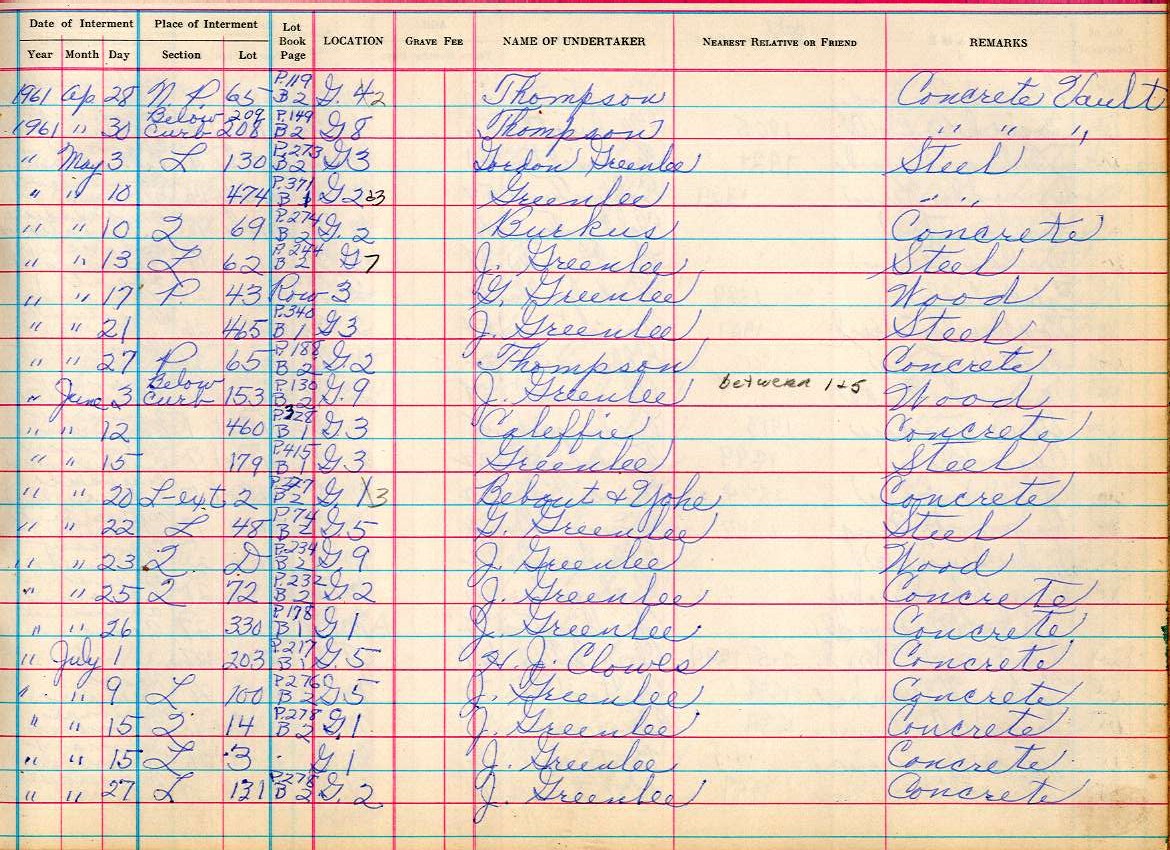 Date of Interment Place of Interment Lot Book Page LOCATION GRAVE FEE NAME OF UNDERTAKER NEAREST RELATIVE OR FRIEND REMARKS
Year Month Day Section Lot
1961 Ap 28 N. P 65 P.119 B 2 G. 42 Thompson Concrete Vault
1961 " 30 Below Curb 209 208 P.149 B 2 G 8 Thompson " " "
" May 3 L 130 P.273 B 2 G 3 Gordon Greenlee Steel
" " 10 474 P.371 B 1 G 2 Greenlee " "
" " 10 2 69 P.274 B 2 G. 2 Burkus Concrete
" " 13 L 62 P.244 B 2 G 7 J. Greenlee Steel
" " 17 P 43 Row 3 G. Greenlee Wood
" " 21 465 P.340 B 1 G 3 J. Greenlee Steel
" " 27 P 65 P.188 B 2 G. 2 Thompson Concrete
" June 3 Below Curb 153 P.130 B. 2 G. 9 J. Greenlee between 1+5 Wood
" " 12 460 B 1 G 3 Caleffie Concrete
" " 15 179 P.415 B 1 G 3 Greenlee Steel
" " 20 L-ext 2 B 2 G. 3 Bebout & Yohe Concrete
" " 22 L 48 P.74 B 2 G. 5 G. Greenlee Steel
" " 23 2 D P.234 B 2 G 9 J. Greenlee Wood
" " 25 2 72 P.232 B 2 G. 2 J. Greenlee Concrete
" " 26 330 P.178 B 1 G 1 J. Greenlee Concrete
" July 1 203 P.217 B 1 G. 5 H. J. Clowes Concrete
" " 9 L 100 P.276 B 2 G. 5 J. Greenlee Concrete
" " 15 2 14 P.278 B 2 G. 1 J. Greenlee Concrete
" " 15 L 3 G 1 J. Greenlee Concrete
" " 27 L 131 P.278 B 2 G. 2 J. Greenlee Concrete